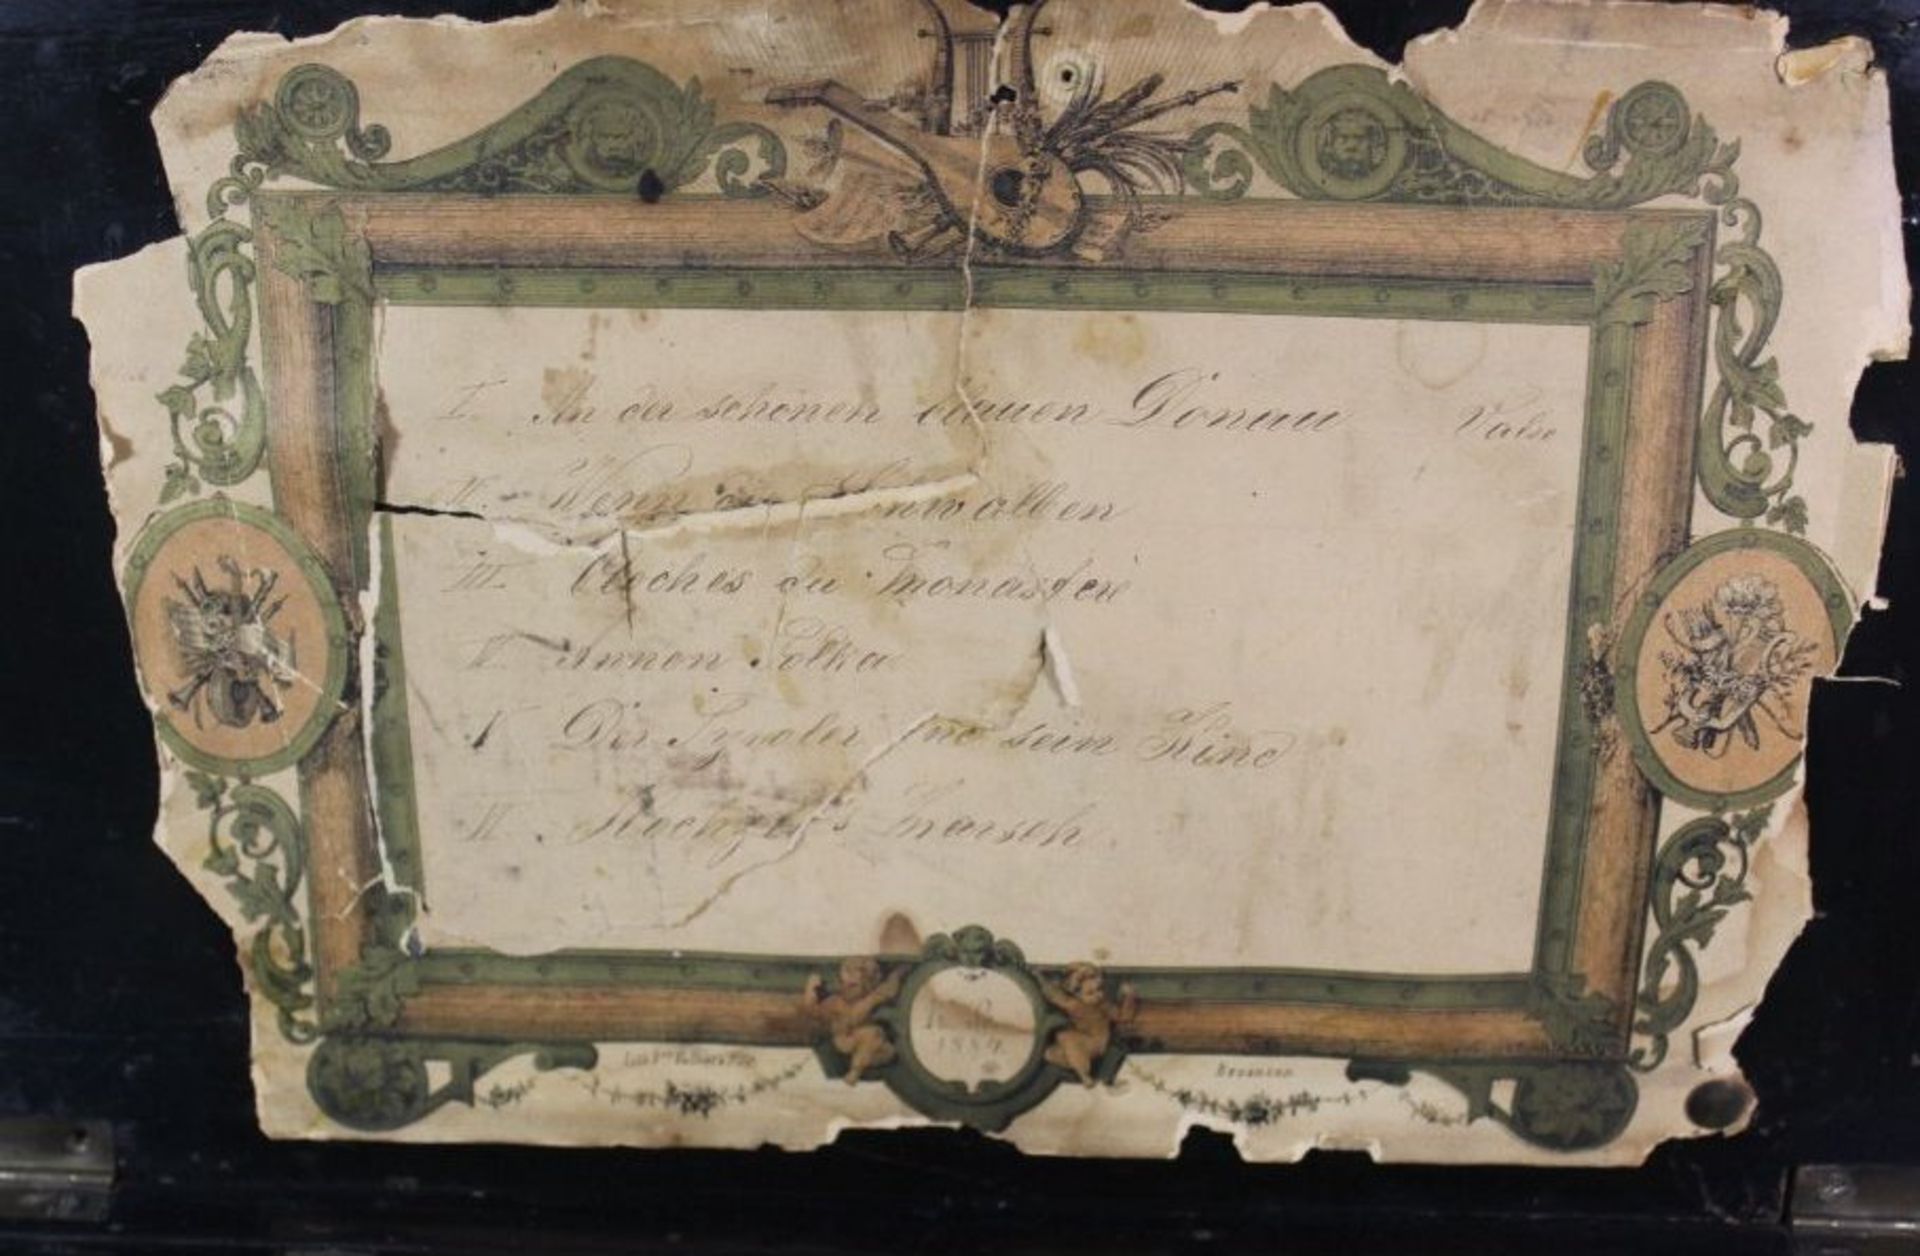 I. An der schönen blauen Donau Valse
II. Wenn die Schwalben
III. Cloches du Monastere
IV. Annen Polka
V Der Tyroler und sein Kind
VI. Hochzeits Marsch.
No
1889.
Besançon